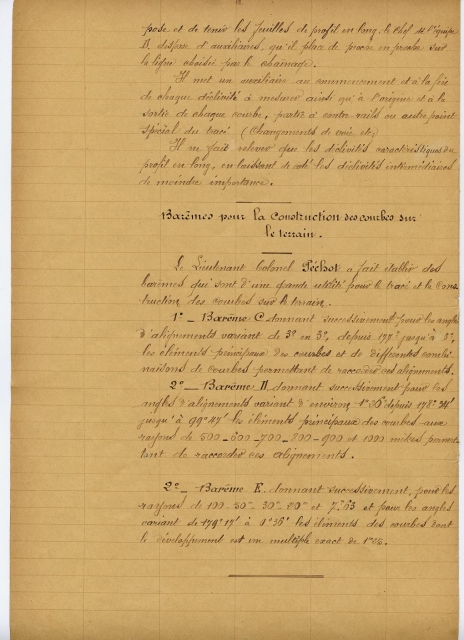 pose et de tenir les feuilles de profil en long, le chef de l'équipe
D, dispose d'auxiliaires, qu'il place de proche en proche sur
la ligne choisie par le chaînage.
Il met un auxiliaire au commencement et à la fin
de chaque déclivité à mesurer ainsi qu'à l'origine et à la
sortie de chaque courbe, partie à contre rails ou autre point
spécial du tracé (changements de voie etc)
Il ne fait relever que les déclivités caractéristiques du
profil en long, en laissant de coté les déclivités intermédiaires
de moindre importance.
Barèmes pour la construction des courbes sur
le terrain.
Le Lieutenant Colonel Péchot a fait établir des
barèmes qui sont d'une grande utilité pour le tracé et la Cons-
truction des courbes sur le terrain.
1º _ Barème C donnant successivement pour les angles
d'alignements variant de 3º en 3º, depuis 177º jusqu'à
les éléments principaux des courbes et de différentes combi-
naisons de courbes permettant de raccorder ces alignements.
2º _ Barème D donnant successivement pour les
angles d'alignements variant d'environ 1º36' depuis 178º
jusqu'à 99º47' les éléments principaux des courbes aux
rayons de 500-600-700-800-900 et 1000 mètres permet-
tant de raccorder ces alignements.
2º _ Barème E donnant successivement, pour les
rayons de 100-50-30-20 et 7.63 et pour les angles
variant de 179º17' à 0º36' les éléments des courbes dont
le développement est un multiple exact de 1m25.